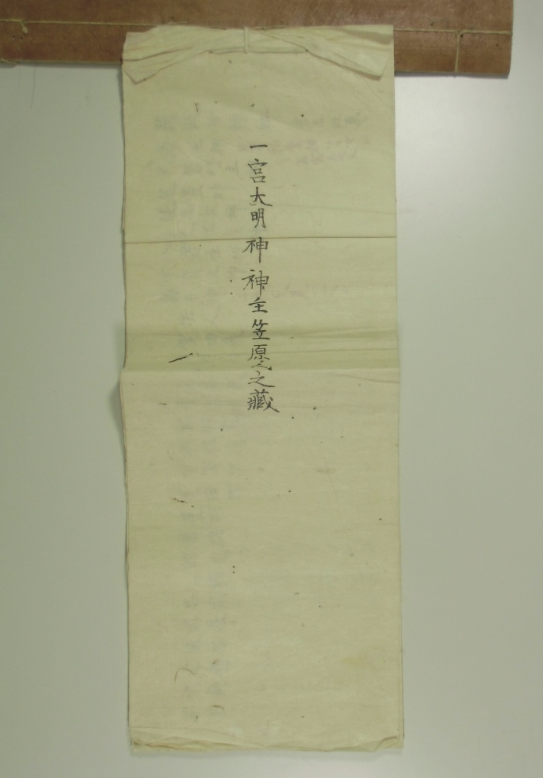 一宮大明神神主笠原氏之藏